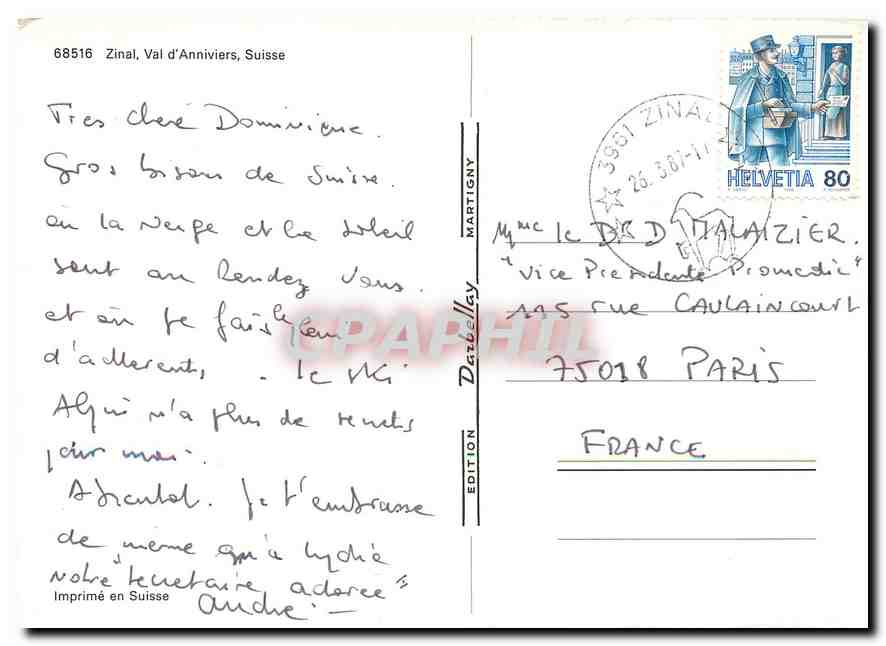 68516 Zinal, Val d'Anniviers, Suisse
Tres cheré Dominique.
Gros bisous de Suisse.
où la Neige et le soleil
sont au Rendez Vous.
et où je fais le plein
d'adherents, . le ski
Alpin n'a plus de secrets
pour moi.
A bientot. Je t'embrasse
de même qu'à Lydie
notre "secretaire adorée"
André
Imprimé en Suisse
EDITION Darbellay MARTIGNY
CPAPHIL
3961 ZINAL
26.3.87-17
HELVETIA 80
Mme le DR D MALAIZIER.
"Vice Presidente Promedic"
115 rue CAULAINCOURT
75018 PARIS
FRANCE